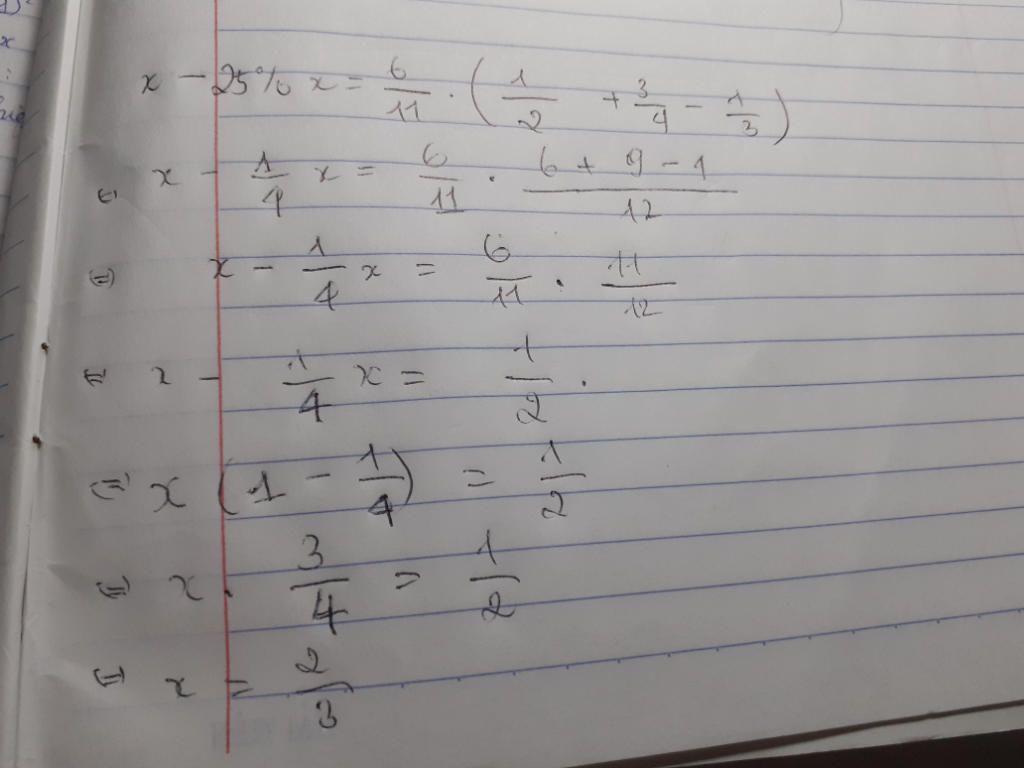 x - 25% x = 6/11 . ( 1/2 + 3/4 - 1/3 )
⇔ x - 1/4 x = 6/11 . (6 + 9 - 1)/12
⇔ x - 1/4 x = 6/11 . 11/12
⇔ x - 1/4 x = 1/2 .
⇔ x ( 1 - 1/4 ) = 1/2
⇔ x . 3/4 = 1/2
⇔ x = 2/3